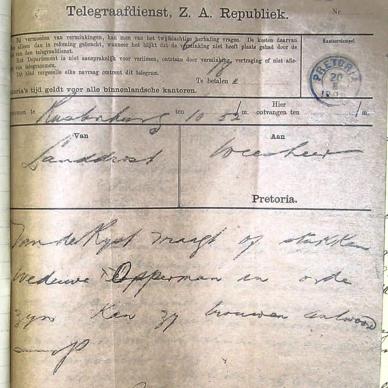 Telegraafdienst, Z. A. Republiek.
Nr.
Bij vermoeden van verminkingen, kan men van het twijfelachtige herhaling vragen. De kosten daarvan
alleen dan in rekening gebracht, wanneer het blijkt dat de verminking niet heeft plaats gehad door de
van den telegraafdienst.
Het Departement is niet aansprakelijk voor verliezen, ontstaan door verminking, vertraging of niet
van telegrammen.
Dit kind vergezelle elke navraag omtrent dit telegram.
Te betalen £
Kantoorstempel.
PRETORIA
20
tijd geldt voor alle binnenlandsche kantoren.
te Rustenburg 10 52 m. Hier ontvangen ten /m.
Van
Landdrost
Aan
Weesheer
Pretoria.
Van de Kyst vraagt of stukken
Weduwe Opperman in orde
zyn Kan zy trouwen antwoord